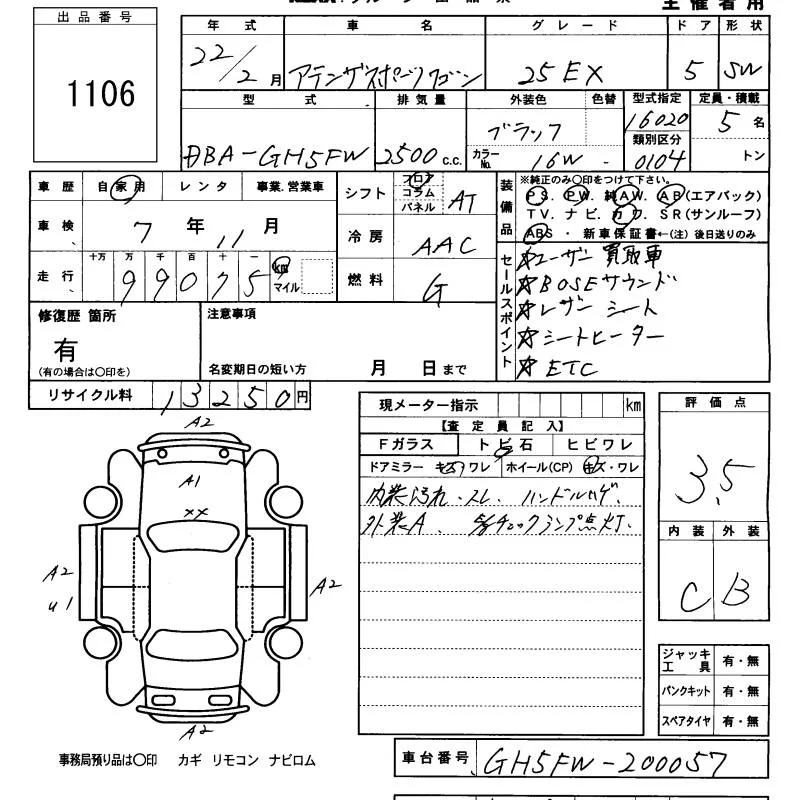 主催者用
出品番号
1106
年式 車名 グレード ドア 形状
22/2月 アテンザスポーツワゴン 25EX 5 SW
型式 排気量 外装色 色替 型式指定 定員・積載
DBA-GH5FW 2500c.c. ブラック 16020 5名
カラーNo. 16W - 類別区分 0104 トン
車歴 自家用 レンタ 事業.営業車
シフト フロア コラム パネル AT
装備品 ※純正のみ○印をつけて下さい。
PS. PW. 純AW. AB(エアバック)
TV. ナビ. カワ. SR(サンルーフ)
ABS・新車保証書←(注) 後日送りのみ
車検 7年11月
冷房 AAC
走行 十万 万 千 百 十 一
99075 km マイル
燃料 G
セールスポイント
☆ユーザー買取車
☆BOSEサウンド
☆レザーシート
☆シートヒーター
☆ETC
修復歴 箇所
有
(有の場合は○印を)
注意事項
名変期日の短い方 月 日まで
リサイクル料 13250円
現メーター指示 km
【査定員記入】
Fガラス トビ石 ヒビワレ
ドアミラー キズワレ ホイール(CP) キズ・ワレ
内装汚れ・スレ ハンドルハゲ.
外装A. チェックランプ点灯.
評価点
3.5
内装 外装
C B
A2
A1
XX
A2
U1
A2
A2
ジャッキ工具 有・無
パンクキット 有・無
スペアタイヤ 有・無
事務局預り品は○印 カギ リモコン ナビロム
車台番号 GH5FW-200057